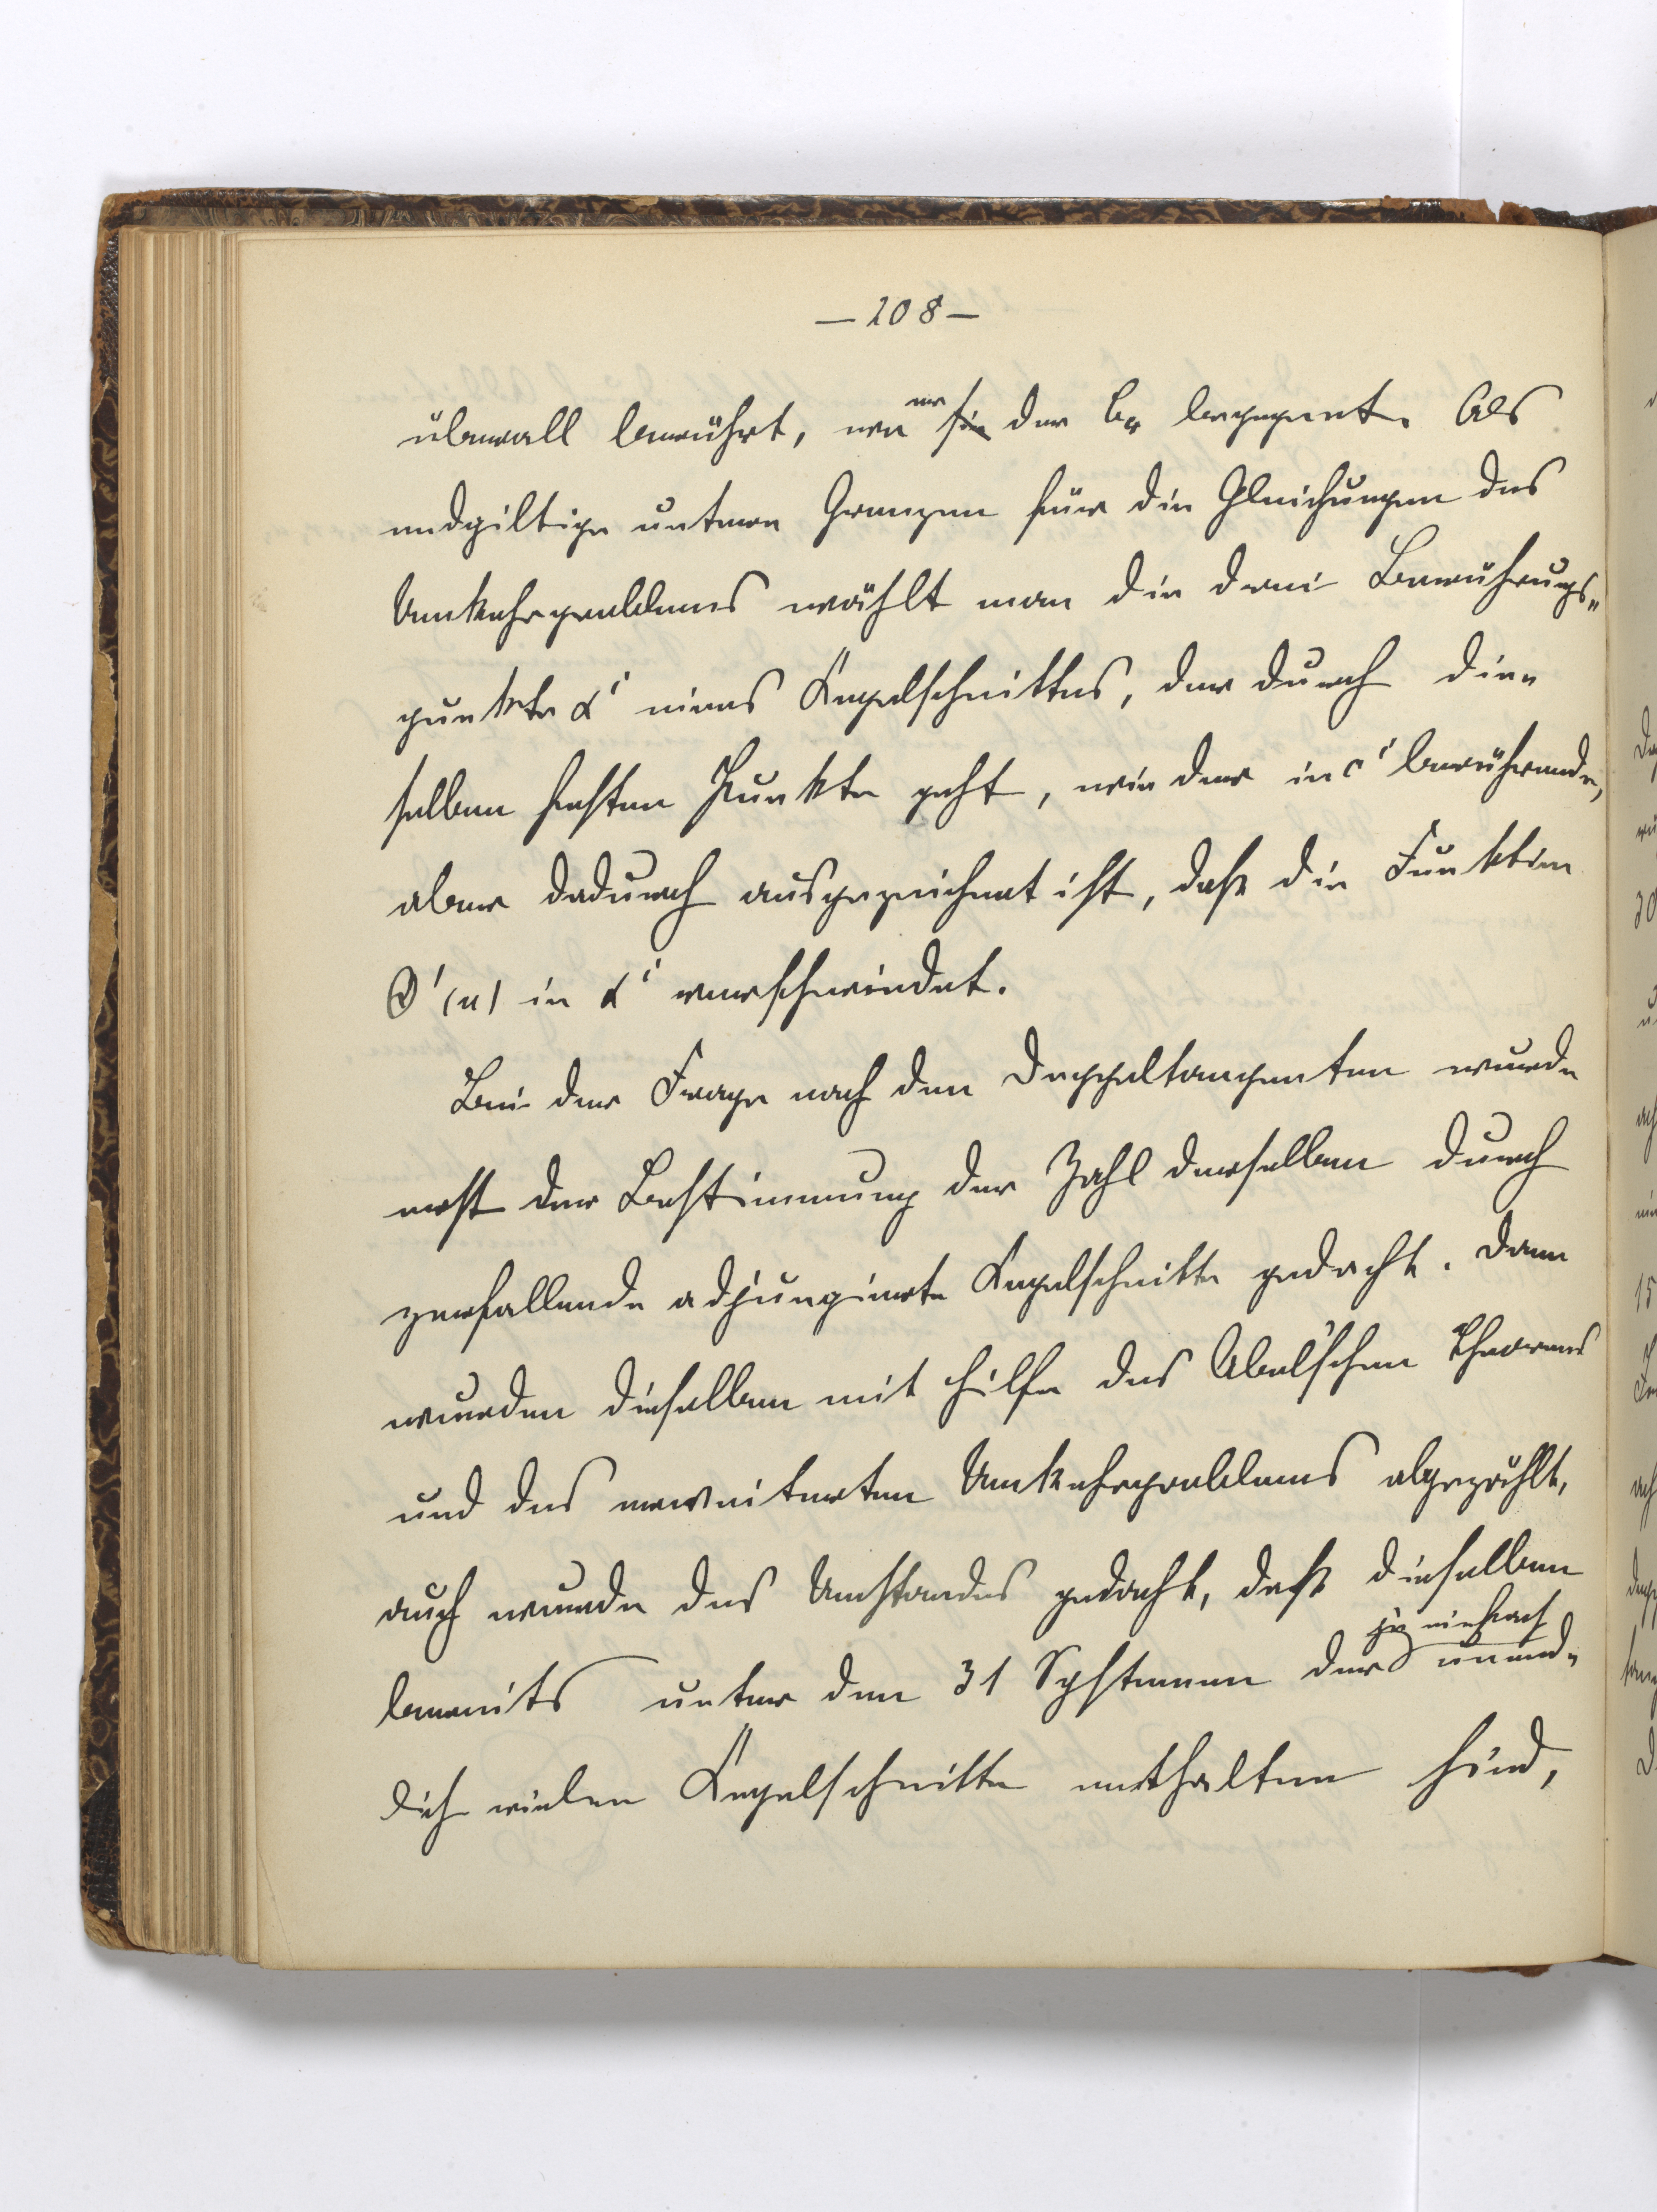 — 208 —
überall berührt, wo er sie der C₄ begegnet. Als
endgiltige untere Grenzen für die Gleichungen des
Umkehrproblems wählt man die drei Berührungs„
punkte α' eines Kegelschnittes, der durch die„
selben festen Punkte geht, wie der in c' berührende,
aber dadurch ausgezeichnet ist, daß die Funktion
Θ'(u) in α' verschwindet.
Bei der Frage nach den Doppeltangenten wurde
erst der Bestimmung der Zahl derselben durch
zerfallende adjungierte Kegelschnitte gedacht. Dann
wurden dieselben mit Hilfe des Abel'schen Theorems
und des erweiterten Umkehrproblems abgezählt,
auch wurde des Umstandes gedacht, daß dieselben
bereits unter den 31 Systemen der je einfach unend„
lich vielen Kegelschnitte enthalten sind,